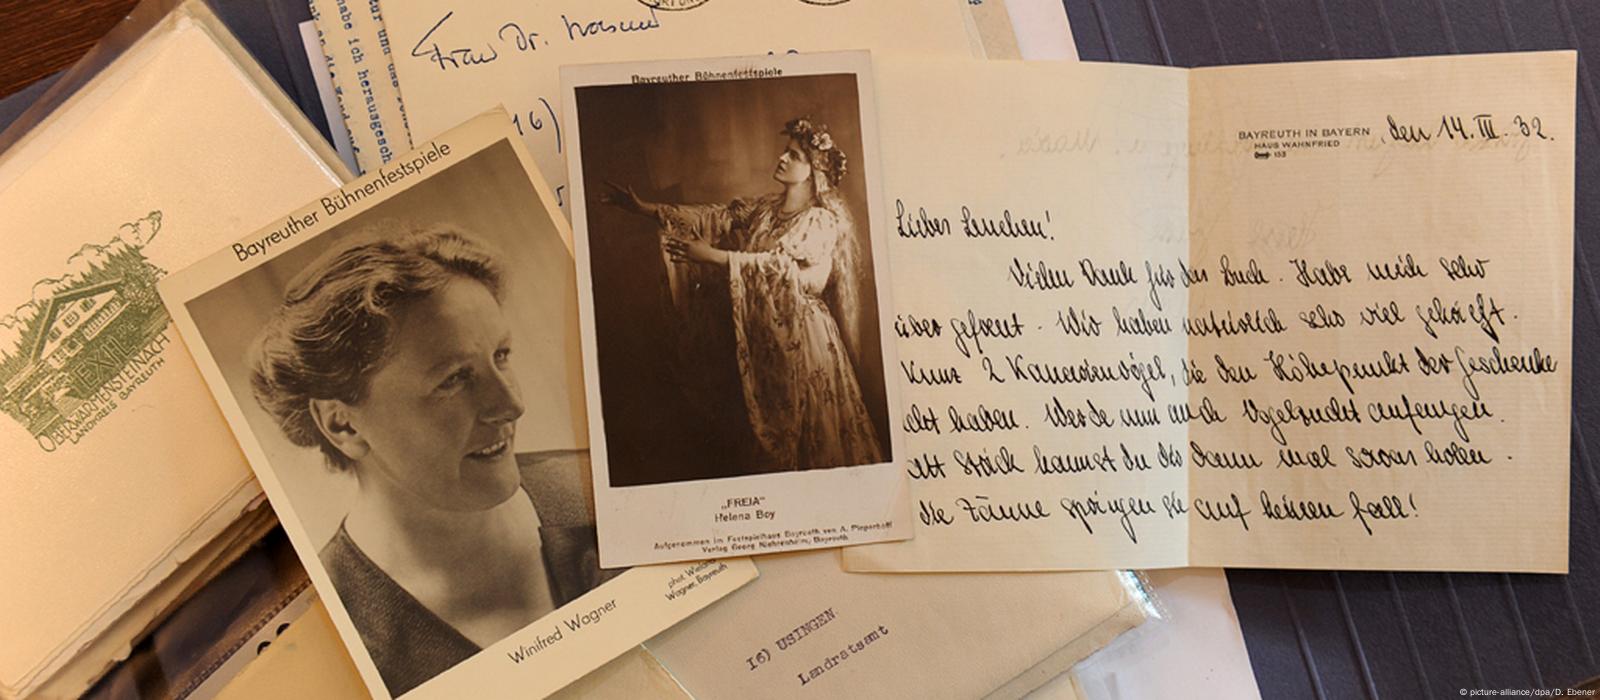 Frau Dr.
16)
habe ich herausgesch
EXIL
OBERWARMENSTEINACH
LANDKREIS BAYREUTH
Bayreuther Bühnenfestspiele
Winifred Wagner
phot Wieland
Wagner, Bayreuth
Bayreuther Bühnenfestspiele
„FREIA“
Helena Boy
Aufgenommen im Festspielhaus Bayreuth von A. Pieperhoff
Verlag Georg Niehrenheim, Bayreuth
BAYREUTH IN BAYERN
HAUS WAHNFRIED
153
den 14. III. 32.
Liebes Lenchen!
Vielen Dank für das Buch. Habe mich sehr
über gefreut. Wir haben natürlich sehr viel gekriegt.
2 Kanarienvögel, die den Höhepunkt der Geschenke
haben. Werde nun auch Vogelzucht anfangen.
Stück kannst du dir dann mal etwas holen.
die Zäune springen sie auf keinen fall!
16) USINGEN
Landratsamt
© picture-alliance/dpa/D. Ebener